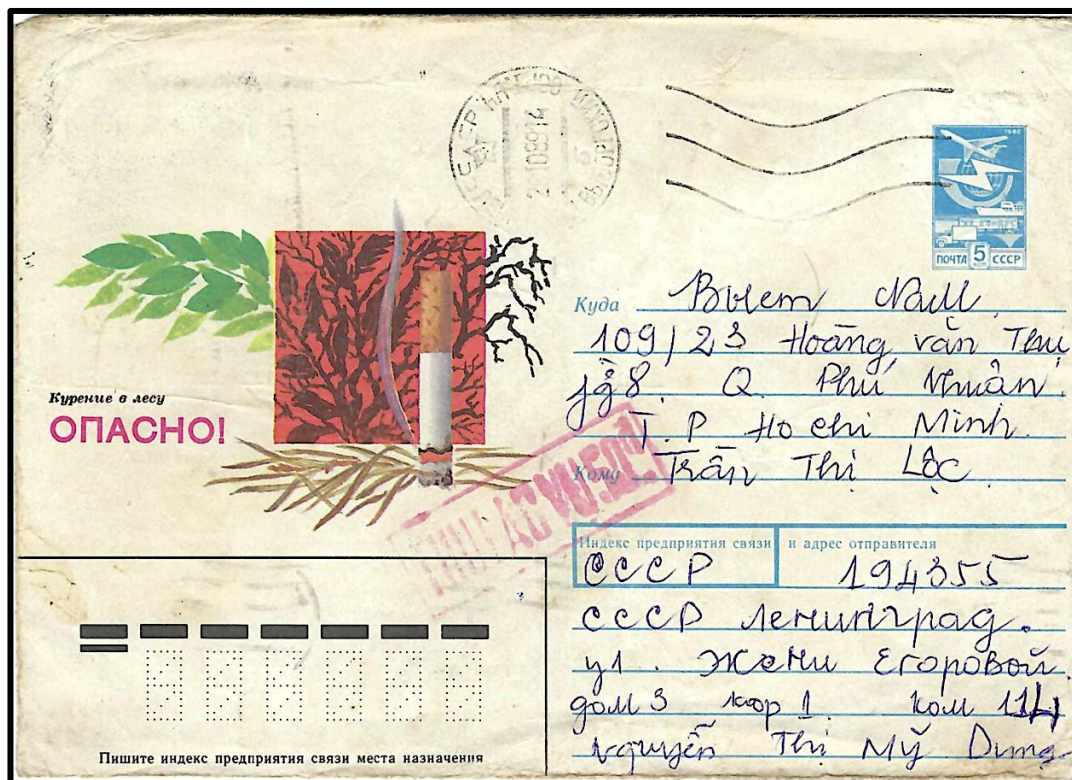 1982
ПОЧТА 5 СССР
Курение в лесу
ОПАСНО!
Куда Вьет Нам
109/23 Hoàng văn Thụ
8. Q. Phú Nhuận
T.P Ho chi Minh
Кому Trần Thị Lộc
Индекс предприятия связи и адрес отправителя
СССР 194355
СССР Ленинград.
ул. Жени Егоровой
дом 3 кор 1. ком 114
Nguyễn Thị Mỹ Dung
Пишите индекс предприятия связи места назначения